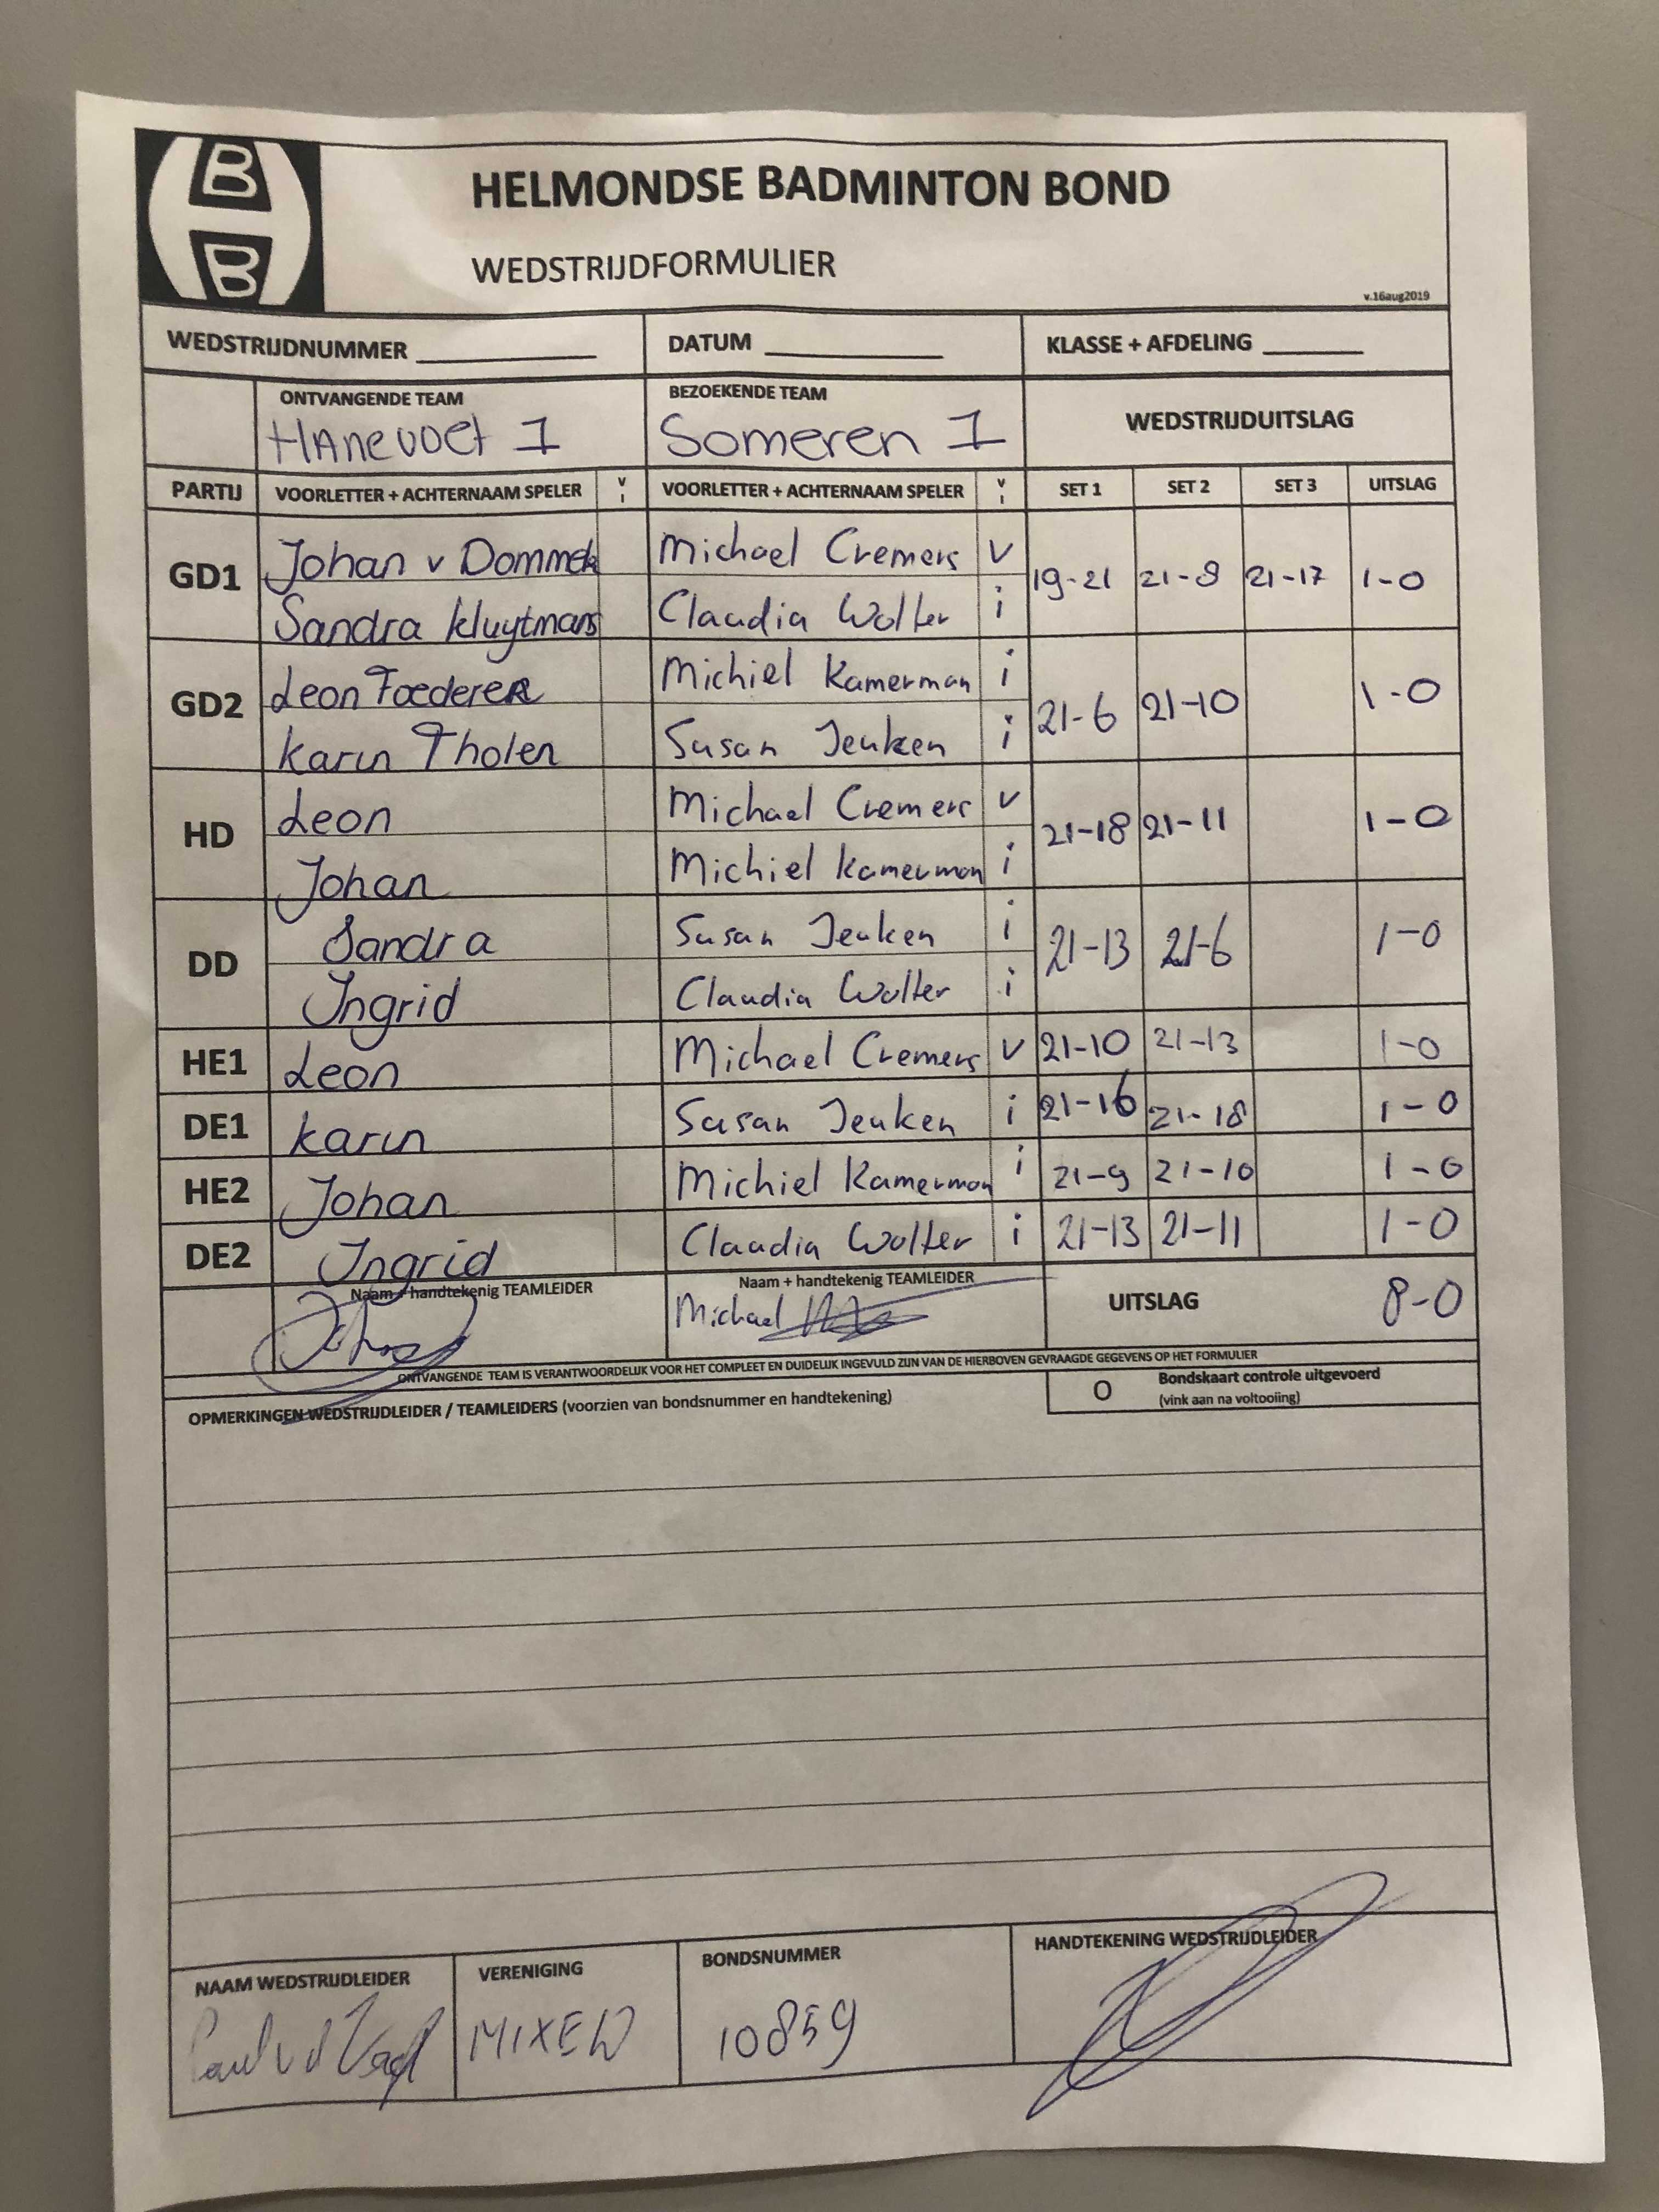 B
B
HELMONDSE BADMINTON BOND
WEDSTRIJDFORMULIER
v.16aug2019
WEDSTRIJDNUMMER DATUM KLASSE + AFDELING
ONTVANGENDE TEAM BEZOEKENDE TEAM WEDSTRIJDUITSLAG
HAnevoet 1 Someren 1
PARTIJ VOORLETTER + ACHTERNAAM SPELER V I VOORLETTER + ACHTERNAAM SPELER V I SET 1 SET 2 SET 3 UITSLAG
GD1 Johan v Michael Cremers v 19-21 21-8 21-17 1-0
Sandra kluytmans Claudia Wolter i
GD2 Leon FoedereR Michiel Kamerman i 21-6 21-10 1-0
Karin Tholen Susan Jeuken i
HD Leon Michael Cremers v 21-18 21-11 1-0
Johan Michiel Kamerman i
DD Sandra Susan Jeuken i 21-13 21-6 1-0
Ingrid Claudia Wolter i
HE1 Leon Michael Cremers v 21-10 21-13 1-0
DE1 Karin Susan Jeuken i 21-16 21-18 1-0
HE2 Johan Michiel Kamerman i 21-9 21-10 1-0
DE2 Ingrid Claudia Wolter i 21-13 21-11 1-0
Naam + handtekenig TEAMLEIDER Naam + handtekenig TEAMLEIDER UITSLAG 8-0
Michael
ONTVANGENDE TEAM IS VERANTWOORDELIJK VOOR HET COMPLEET EN DUIDELIJK INGEVULD ZIJN VAN DE HIERBOVEN GEVRAAGDE GEGEVENS OP HET FORMULIER
OPMERKINGEN WEDSTRIJDLEIDER / TEAMLEIDERS (voorzien van bondsnummer en handtekening) O Bondskaart controle uitgevoerd
(vink aan na voltooiing)
NAAM WEDSTRIJDLEIDER VERENIGING BONDSNUMMER HANDTEKENING WEDSTRIJDLEIDER
Paul v d MIXED 10859